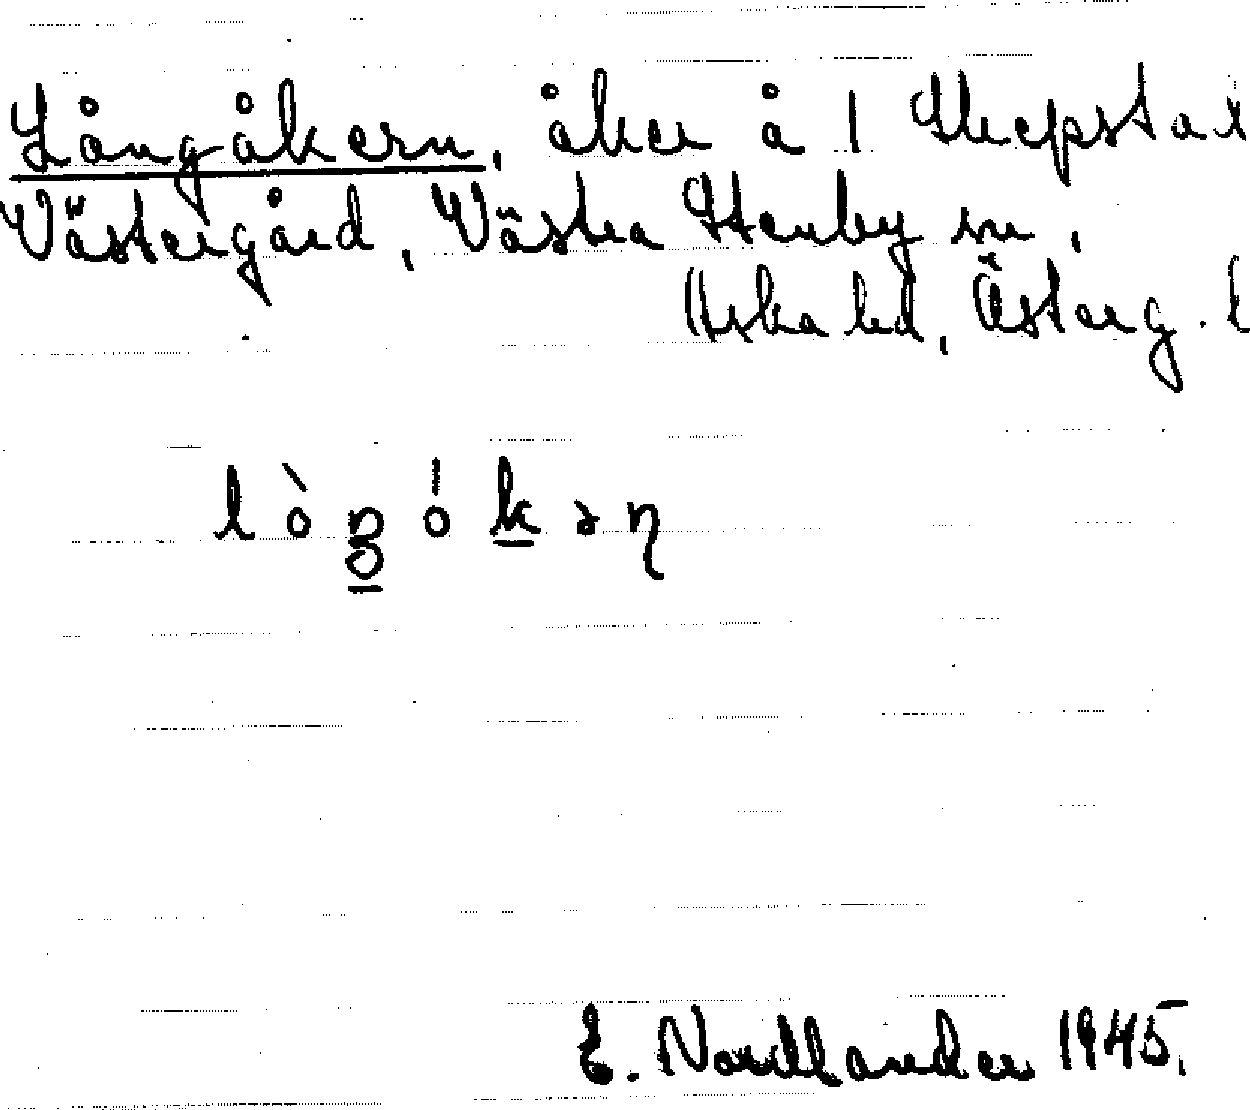 Långåkern, åker å 1 Skepstad
Västergård, Västra Stenby sn,
Aska hd, Österg. l
lò̀ŋó́kəɳ
E. Nordlander 1945.